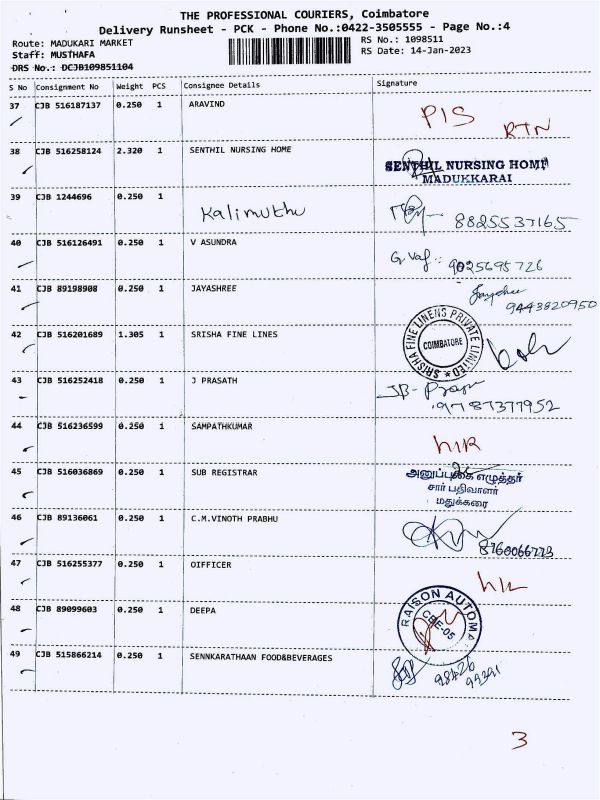 THE PROFESSIONAL COURIERS, Coimbatore
Delivery Runsheet - PCK - Phone No.:0422-3505555 - Page No.:4
Route: MADUKARI MARKET
RS No.: 1098511
Staff: MUSTHAFA
RS Date: 14-Jan-2023
DRS No.: DCJB109851104
S No Consignment No Weight PCS Consignee Details Signature
37 CJB 516187137 0.250 1 ARAVIND
PIS RTN
38 CJB 516258124 2.320 1 SENTHIL NURSING HOME
SENTHIL NURSING HOME
MADUKKARAI
39 CJB 1244696 0.250 1
Kalimuthu 8825537165
40 CJB 516126491 0.250 1 V ASUNDRA
9025695726
41 CJB 89198908 0.250 1 JAYASHREE
9443820950
42 CJB 516201689 1.305 1 SRISHA FINE LINES
SRISHA FINE LINENS PRIVATE LIMITED
COIMBATORE
43 CJB 516252418 0.250 1 J PRASATH
9787377952
44 CJB 516236599 0.250 1 SAMPATHKUMAR
45 CJB 516036869 0.250 1 SUB REGISTRAR
அனுப்புகை எழுத்தர்
சார் பதிவாளர்
மதுக்கரை
46 CJB 89136061 0.250 1 C.M.VINOTH PRABHU
8760066773
47 CJB 516255377 0.250 1 OIFFICER
48 CJB 89099603 0.250 1 DEEPA
RAISON AUTOMA
CBE-05
49 CJB 515866214 0.250 1 SENNKARATHAAN FOOD&BEVERAGES
3